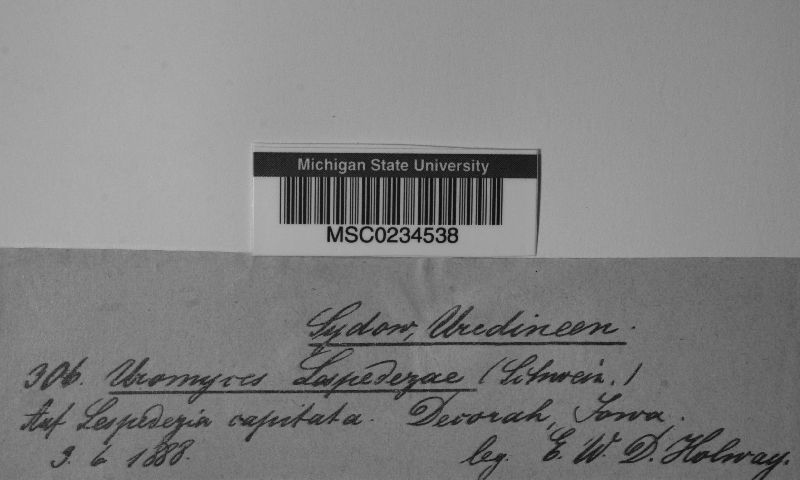 Michigan State University
MSC0234538
Sydow, Uredineen.
306. Uromyces Lespedezae (Schwein.)
Auf Lespedezia capitata. Decorah, Iowa.
3. 6. 1888. leg. E. W. D. Holway.